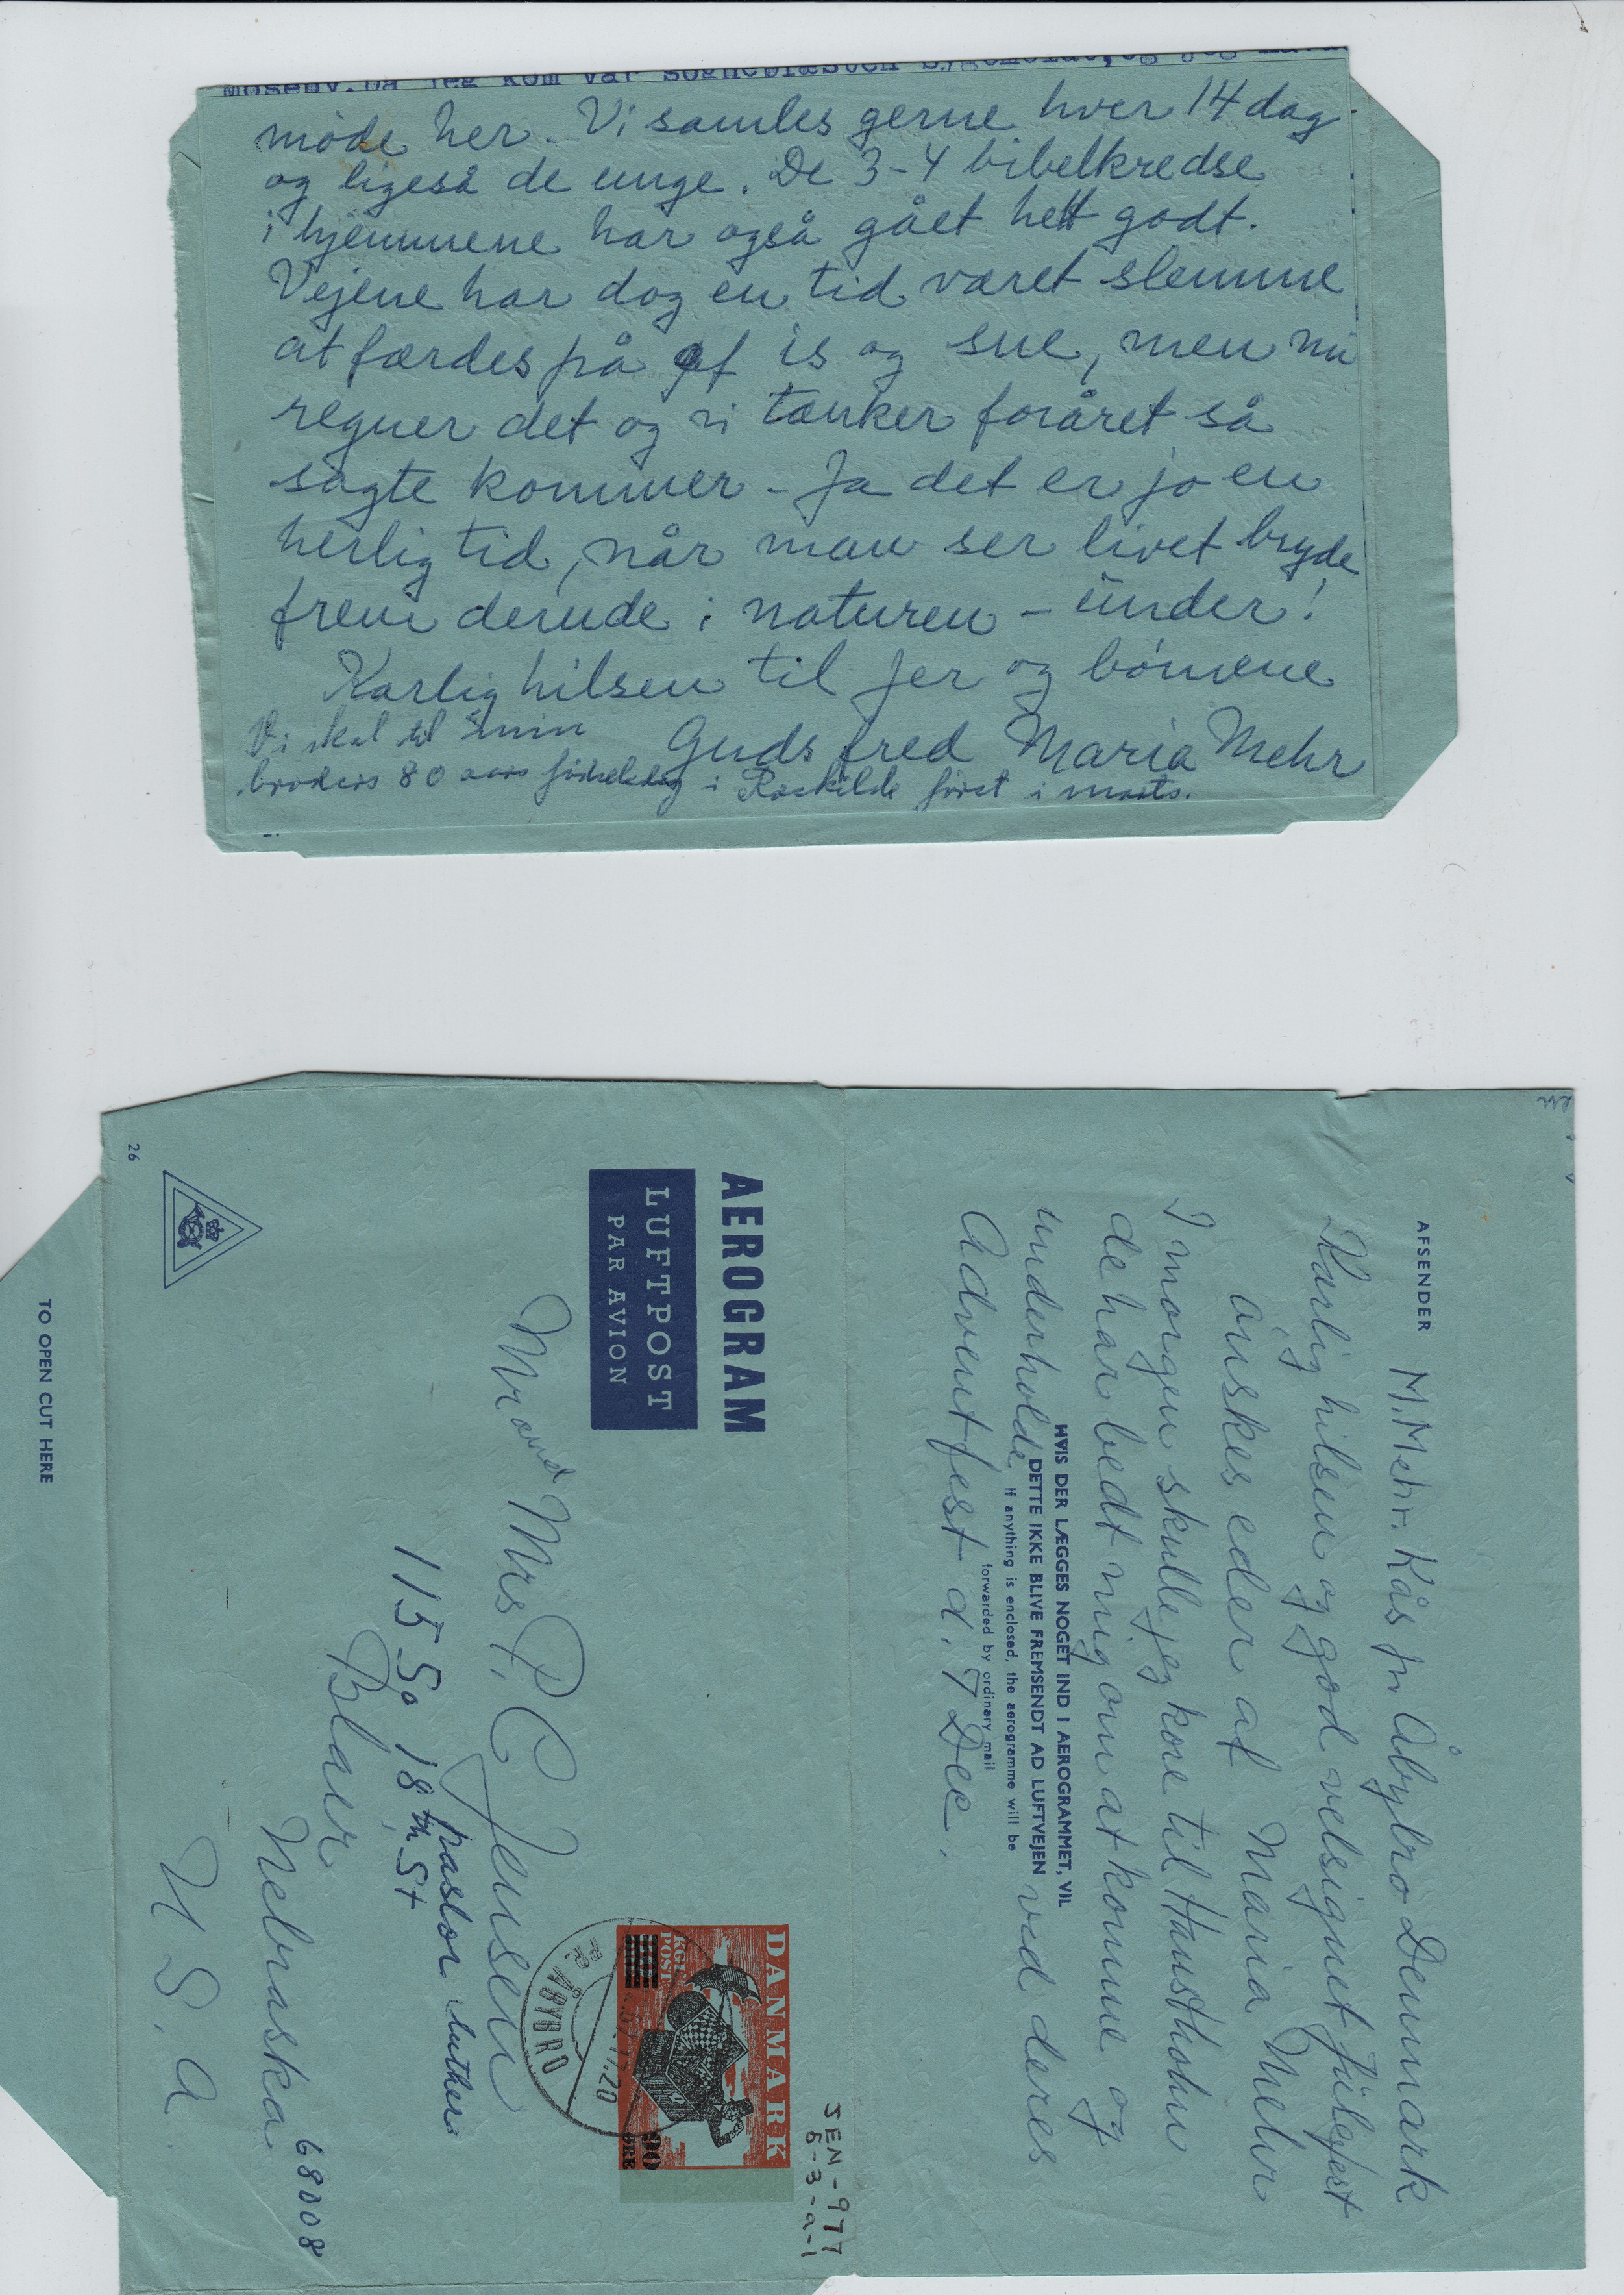 Moseby. Da jeg kom var sognepræsten
møde her. Vi samles gerne hver 14 dag
og ligeså de unge. De 3-4 bibelkredse
i hjemmene har også gået helt godt.
Vejene har dog en tid været slemme
at færdes på af is og sne, men nu
regner det og vi tænker foråret så
sagte kommer - Ja det er jo en
herlig tid, når man ser livet bryde
frem derude i naturen - under!
Kærlig hilsen til Jer og börnene
Guds fred Maria Mehr
Vi skal til min
broders 80 aars födselsdag i Roskilde först i marts.
AFSENDER M. Mehr. Kås pr Åbybro Denmark
Kærlig hilsen og god velsignet Julefest
önskes eder af Maria Mehr
I morgen skulle jeg köre til Hanstholm
de har bedt mig om at komme og
underholde ved deres
Adventfest d. 7 Dec.
HVIS DER LÆGGES NOGET IND I AEROGRAMMET, VIL
DETTE IKKE BLIVE FREMSENDT AD LUFTVEJEN
If anything is enclosed, the aerogramme will be
forwarded by ordinary mail
JEN-977
6-3-a-1
AEROGRAM
LUFTPOST
PAR AVION
DANMARK
KGL.
POST
90
ØRE
ÅBYBRO
17.20
Mr and Mrs P. C Jensen
pastor luthers
115 So 18 th St
Blair
Nebraska 68008
U S. A.
26
TO OPEN CUT HERE